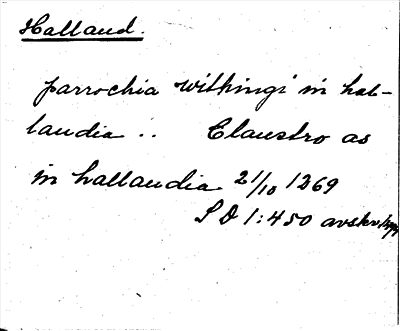 Halland.
parrochia withingi in hal-
landia .. Claustro as
in hallandia 21/10 1269
SD 1:450 avskr